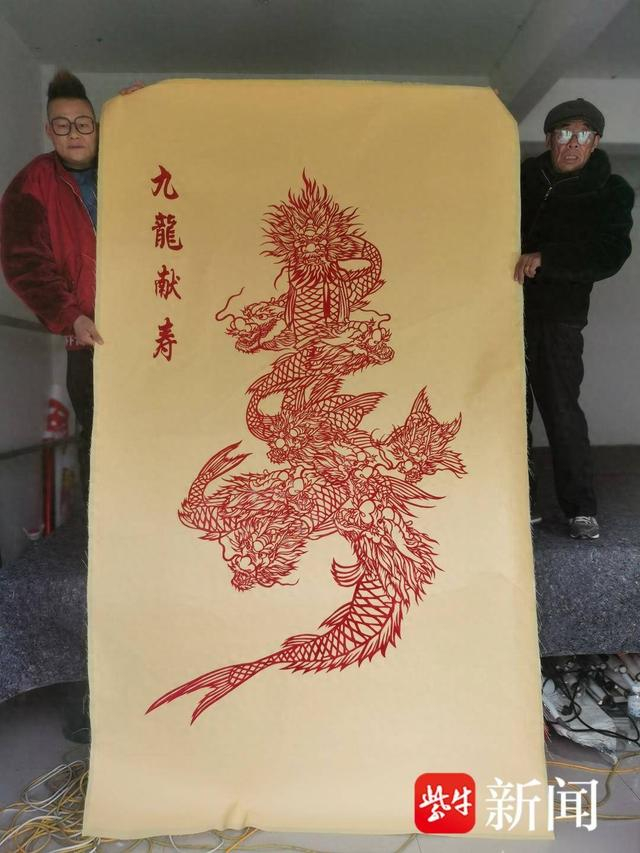 九龍献寿
紫牛新闻